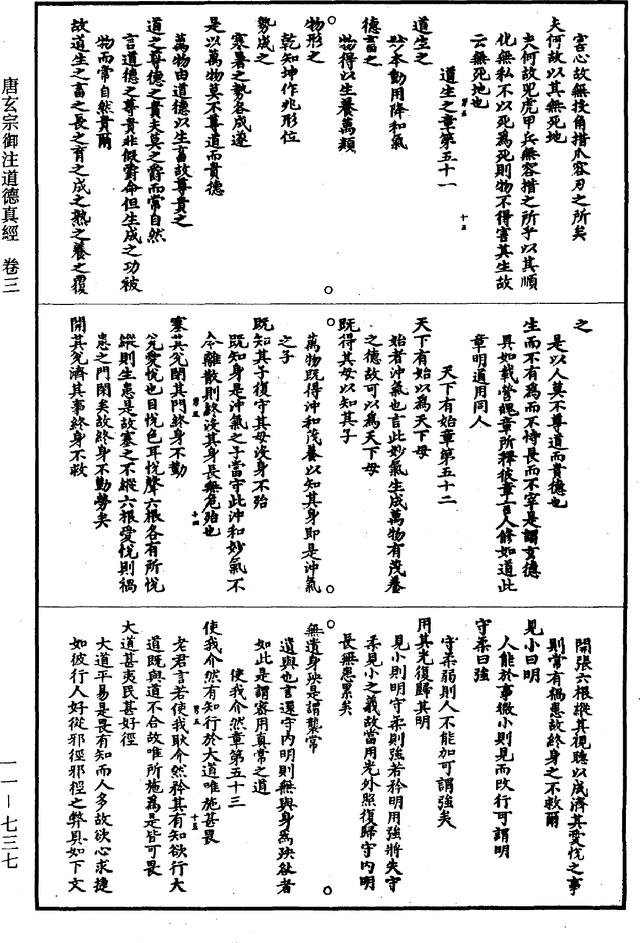 害心故無投角措爪容刃之所矣
夫何故以其無死地
夫何故兕虎甲兵無容措之所乎以其順
化無私不以死為死則物不得害其生故
云無死地也
道生之章第五十一
道生之
妙本動用降和氣
德畜之
物得以生養萬類
物形之
乾知坤作兆形位
勢成之
寒暑之勢各成遂
是以萬物莫不尊道而貴德
萬物由道德以生畜故尊貴之
道之尊德之貴夫莫之爵而常自然
言道德之尊貴非假爵命但生成之功被
物而常自然貴爾
故道生之畜之長之育之成之熟之養之覆
之
是以人莫不尊道而貴德也
生而不有為而不恃長而不宰是謂玄德
具如載營魄章所釋彼章言人修如道此
章明道用同人
天下有始章第五十二
天下有始以為天下母
始者沖氣也言此妙氣生成萬物有茂養
之德故可以為天下母
既得其母以知其子
萬物既得沖和茂養以知其身即是沖氣
之子
既知其子復守其母沒身不殆
既知身是沖氣之子當守此沖和妙氣不
令離散則終沒其身長無危殆也
塞其兌閉其門終身不勤
兌愛悅也目悅色耳悅聲六根各有所悅
縱則生患是故塞之不縱六根愛悅則禍
患之門閉矣故終身不勤勞矣
開其兌濟其事終身不救
開張六根縱其視聽以成濟其愛悅之事
則常有禍患故終身之不救爾
見小曰明
人能於事微小則見而改行可謂明
守柔曰強
守柔弱則人不能加可謂強矣
用其光復歸其明
見小則明守柔則強若矜明用強將失守
柔見小之義故當用光外照復歸守內明
長無患累矣
無遺身殃是謂襲常
遺與也言還守內明則無與身為殃咎者
如此是謂密用真常之道
使我介然章第五十三
使我介然有知行於大道唯施甚畏
老君言若使我耿介然矜其有知欲行大
道既與道不合故唯所施為是皆可畏
大道甚夷民甚好徑
大道平易是畏有知而人多故欲心求捷
如彼行人好從邪徑邪徑之弊具如下文
唐玄宗御注道德真經 卷三
一一－七三七